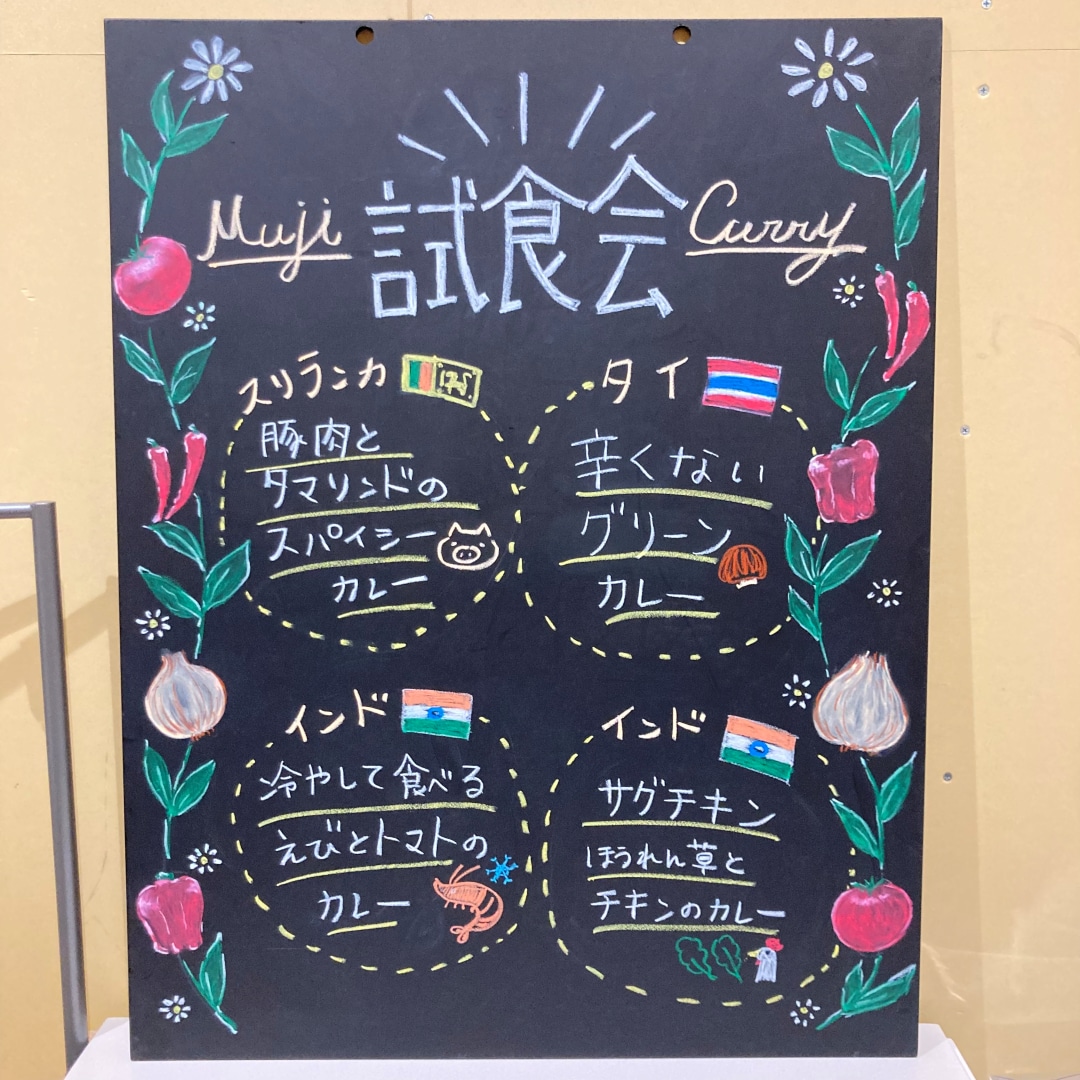 Muji 試食会 Curry
スリランカ
豚肉と
タマリンドの
スパイシー
カレー
タイ
辛くない
グリーン
カレー
インド
冷やして食べる
えびとトマトの
カレー
インド
サグチキン
ほうれん草と
チキンのカレー